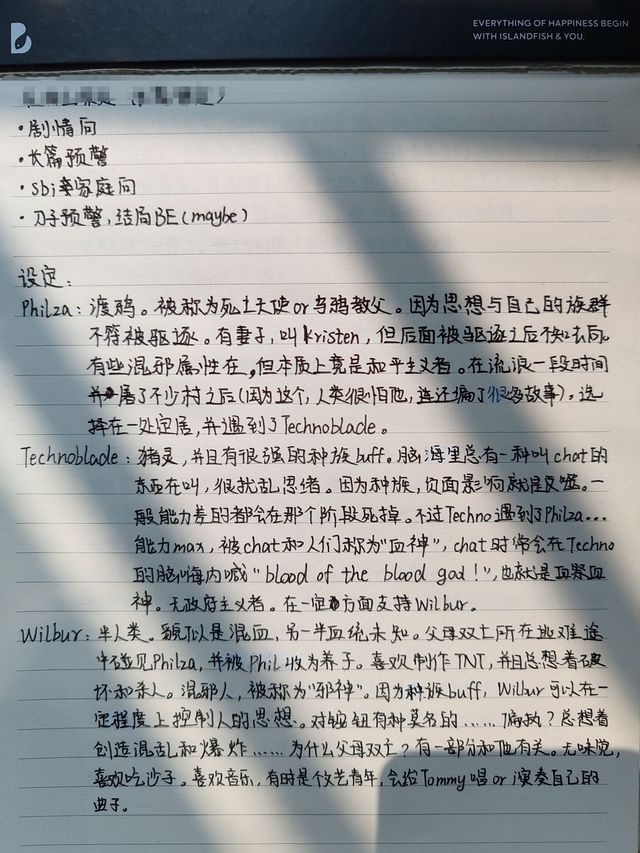 EVERYTHING OF HAPPINESS BEGIN
WITH ISLANDFISH & YOU.
·剧情向
·长篇预警
·sbi亲家庭向
·刀子预警,结局BE(maybe)
设定:
Philza:渡鸦。被称为死亡天使or乌鸦教父。因为思想与自己的族群
不符被驱逐。有妻子,叫Kristen,但后面被驱逐之后不知去向。
有些混邪属性在,但本质上竟是和平主义者。在流浪一段时间
并屠了不少村之后(因为这个,人类很怕他,连还编了很多故事)。选
择在一处定居,并遇到了Technoblade。
Technoblade:猪灵,并且有很强的种族buff。脑海里总有一种叫chat的
东西在叫,很扰乱思绪。因为种族,负面影响就是反噬。一
般能力差的都会在那个阶段死掉。不过Techno遇到了Philza...
能力max,被chat和人们称为“血神”,chat时常会在Techno
的脑海内喊“blood of the blood god!”,也就是血祭血
神。无政府主义者。在一定方面支持Wilbur。
Wilbur:半人类。貌似是混血,另一半血统未知。父母双亡所在逃难途
中碰见Philza,并被Phil收为养子。喜欢制作TNT,并且总想着破
坏和杀人。混邪人,被称为“邪神”。因为种族buff,Wilbur可以在一
定程度上控制人的思想。对按钮有种莫名的......偏执?总想着
创造混乱和爆炸......为什么父母双亡?有一部分和他有关。无味觉,
喜欢吃沙子。喜欢音乐,有时是个文艺青年,会给Tommy唱or演奏自己的
曲子。